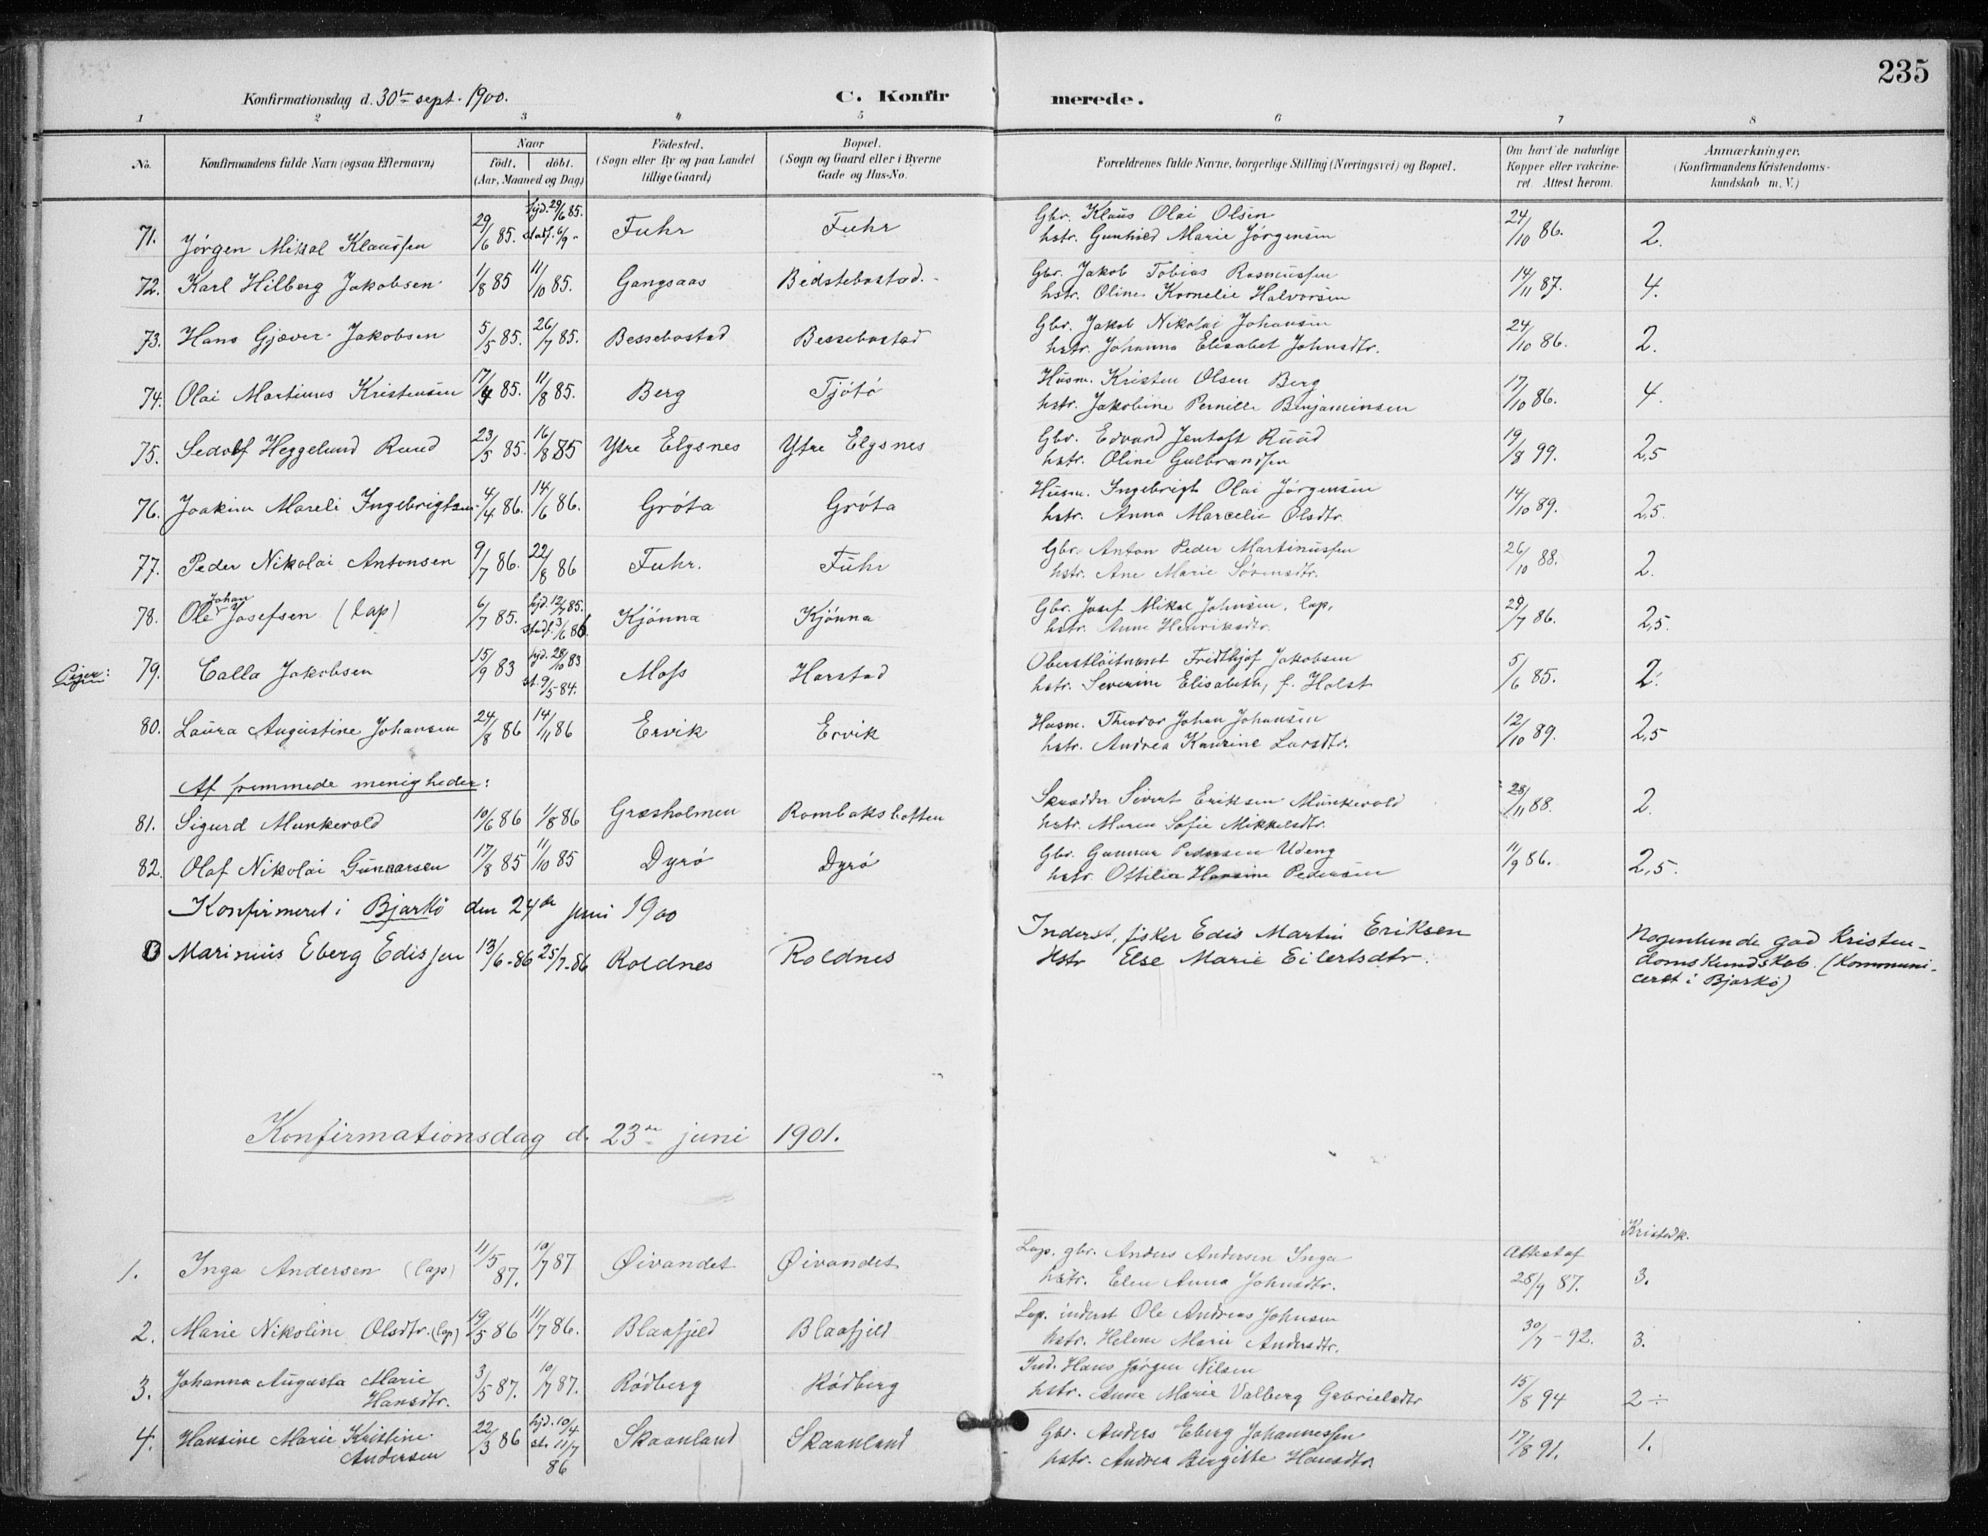 235
Konfirmationsdag d. 30te sept. 1900. C. Konfir merede.
1 2 3 4 5 6 7 8
No. Konfirmandens fulde Navn (ogsaa Efternavn) Naar født. døbt. (Aar, Maaned og Dag) Fødested. (Sogn eller By og paa Landet tillige Gaard) Bopæl. (Sogn og Gaard eller i Byerne Gade og Hus-No. Forældrenes fulde Navne, borgerlige Stilling (Næringsvei) og Bopæl. Om havt de naturlige Kopper eller vakcineret. Attest herom. Anmærkninger. (Konfirmandens Kristendomskundskab m. V.)
71. Jørgen Mikal Klaussen 29/6 85. hjd. 29/6 85. stadf. 6/9 - Fuhr Fuhr Gbr. Klaus Olai Olsen 24/10 86. 2.
hstr. Gunhild Marie Jørgensen
72. Karl Hilberg Jakobsen 1/8 85 11/10 85. Gangsaas Bedstebostad. Gbr. Jakob Tobias Rasmussen 14/11 87. 4.
hstr. Oline Kornelie Halvorsen
73. Hans Gjæver Jakobsen 5/5 85. 26/7 85. Bessebostad Bessebostad Gbr. Jakob Nikolai Johansen 24/10 86. 2.
hstr. Johanna Elisabet Johnsdtr.
74. Olai Martinus Kristensen 17/4 85. 11/8 85. Berg Tjøtø Husm. Kristen Olsen Berg 17/10 86. 4.
hstr. Jakobine Pernille Benjaminsen
75. Sedolf Heggelund Ruud 23/5 85. 16/8 85 Ytre Elgsnes Ytre Elgsnes Gbr. Edvard Jentoft Ruud 19/8 99. 2,5
hstr. Oline Gulbrandsen
76. Joakim Mareli Ingebrigtsen 4/4 86. 14/6 86. Grøta Grøta Husm. Ingebrigt Olai Jørgensen 14/10 89. 2,5.
hstr. Anna Marcelie Olsdtr.
77. Peder Nikolai Antonsen 9/7 86. 22/8 86 Fuhr. Fuhr Gbr. Anton Peder Martinussen 26/10 88. 2.
hstr. Ane Marie Sørensdtr.
78. Ole Johan Josefsen (Lap) 6/7 85. hjd. 12/7 85. stadf. 3/6 86. Kjønna Kjønna Gbr. Josef Mikal Johnsen, lap, 29/7 86. 2,5.
hstr. Anne Henriksdtr.
Piger: 79. Calla Jakobsen 15/9 83 hjd. 28/10 83 st. 9/5 84. Moss Harstad Oberstløitnant Fridthjof Jakobsen 5/6 85. 2.
hstr. Severine Elisabeth, f. Holst
80. Laura Augustine Johansen 24/8 86 14/11 86 Ervik Ervik Husm. Theodor Johan Johansen 12/10 89. 2,5
hstr. Andrea Kaurine Larsdtr.
Af fremmede menigheder:
81. Sigurd Munkevold 10/6 86 1/8 86 Græsholmen Rombaksbotten Skrædder Sivert Eriksen Munkevold 28/11 88. 2.
hstr. Maren Sofie Mikkelsdtr.
82. Olaf Nikolai Gunnarsen 17/8 85 11/10 85 Dyrø Dyrø Gbr. Gunnar Pedersen Udeng 11/9 86. 2,5.
hstr. Ottilie Hansine Pedersen
Konfirmeret i Bjarkø den 24de juni 1900
83 Marinius Eberg Edissen 13/6-86 25/7-86 Roldnes Roldnes Inderst, fisker Edis Martin Eriksen Nogenlunde god Kristen-
Hstr Else Marie Eilertsdtr. domskundskab. (Kommuni-
ceret i Bjarkø)
Konfirmationsdag d. 23de juni 1901.
Kristdk.
1. Inga Andersen (lap) 11/5 87. 10/7 87 Øivandet Øivandet Lap. gbr. Anders Andersen Inga Attest af 28/9 87. 3.
hstr. Elen Anna Johnsdtr.
2. Marie Nikoline Olsdtr. (lap) 19/5 86 11/7 86. Blaafjeld Blaafjeld Lap. inderst Ole Andreas Johnsen 30/7 - 92. 3.
hstr. Helene Marie Andersdtr.
3. Johanna Augusta Marie Hansdtr. 3/5 87. 10/7 87. Rødberg Rødberg Ind. Hans Jørgen Nilsen 15/8 94 2 ÷
hstr. Anne Marie Valberg Gabrielsdtr
4. Hansine Marie Kristine Andersen 22/3 86 hjd. 10/4 st. 11/7 86 Skaanland Skaanland Gbr. Anders Eberg Johannessen 17/8 91. 1.
hstr. Andrea Bergitte Hansdtr.